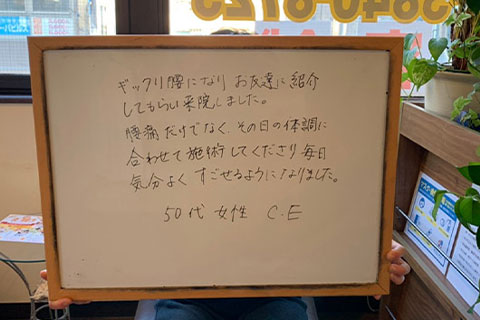 5640-6125
ギックリ腰になり お友達に紹介
してもらい来院しました。
腰痛だけでなく、その日の体調に
合わせて施術してくださり毎日
気分よく すごせるようになりました。
50代 女性 C.E